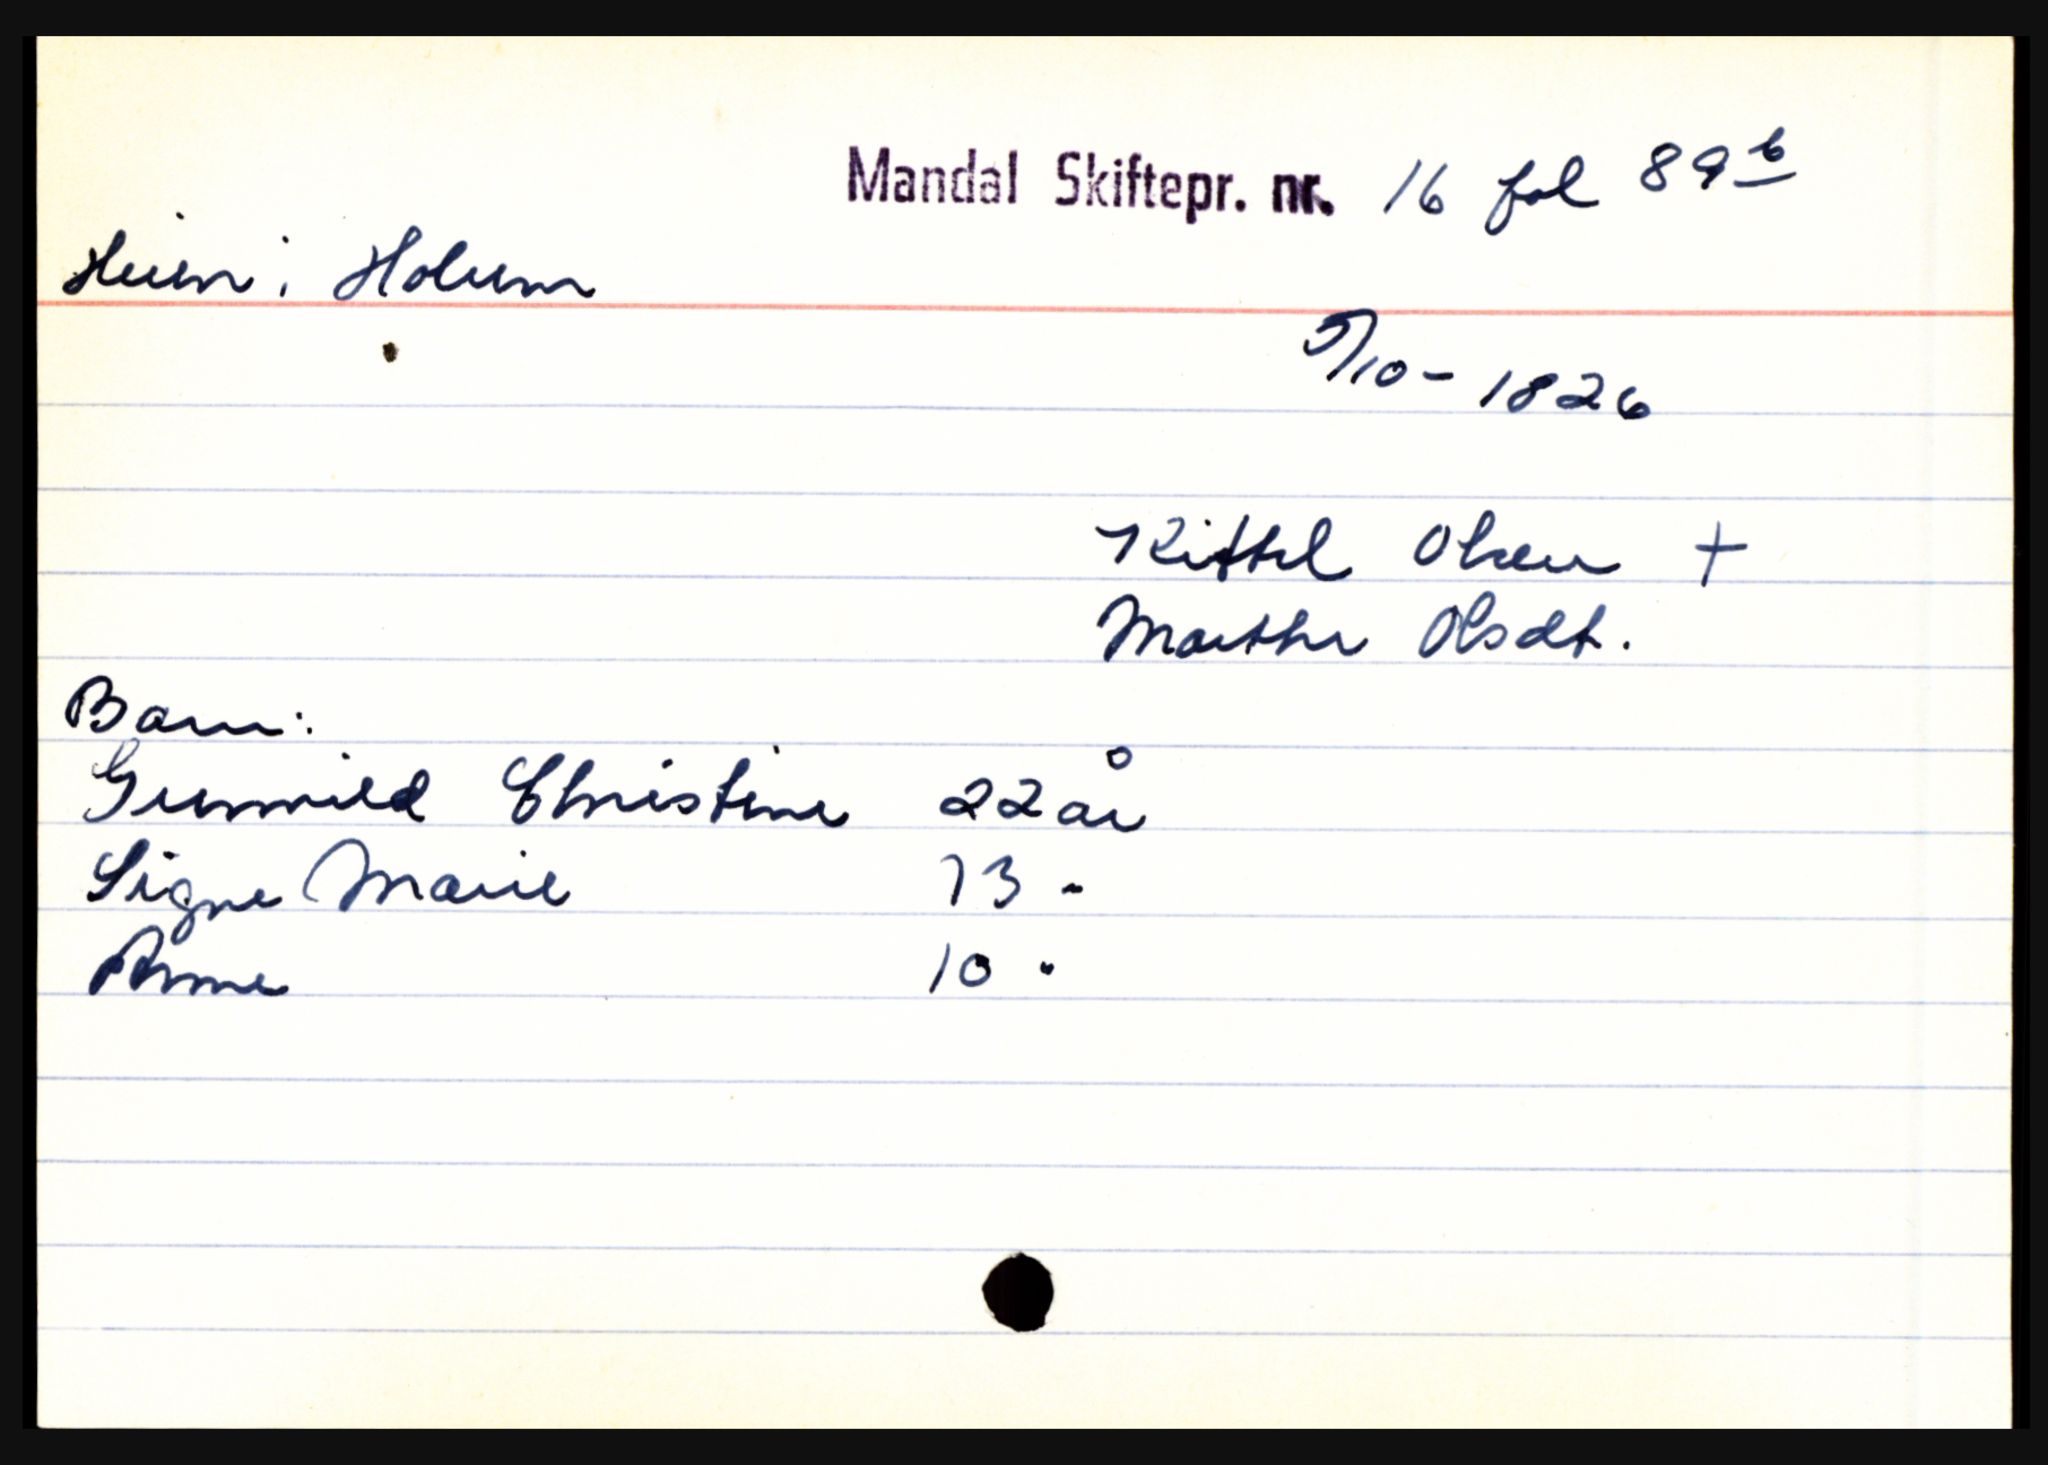 Mandal Skiftepr. nr. 16 fol 89 b
Heien i Holum
5/10 - 1826
Kittel Olsen +
Marthe Olsdt.
Barn:
Gunnild Christine 22 år
Signe Marie 13 "
Anne 10 "